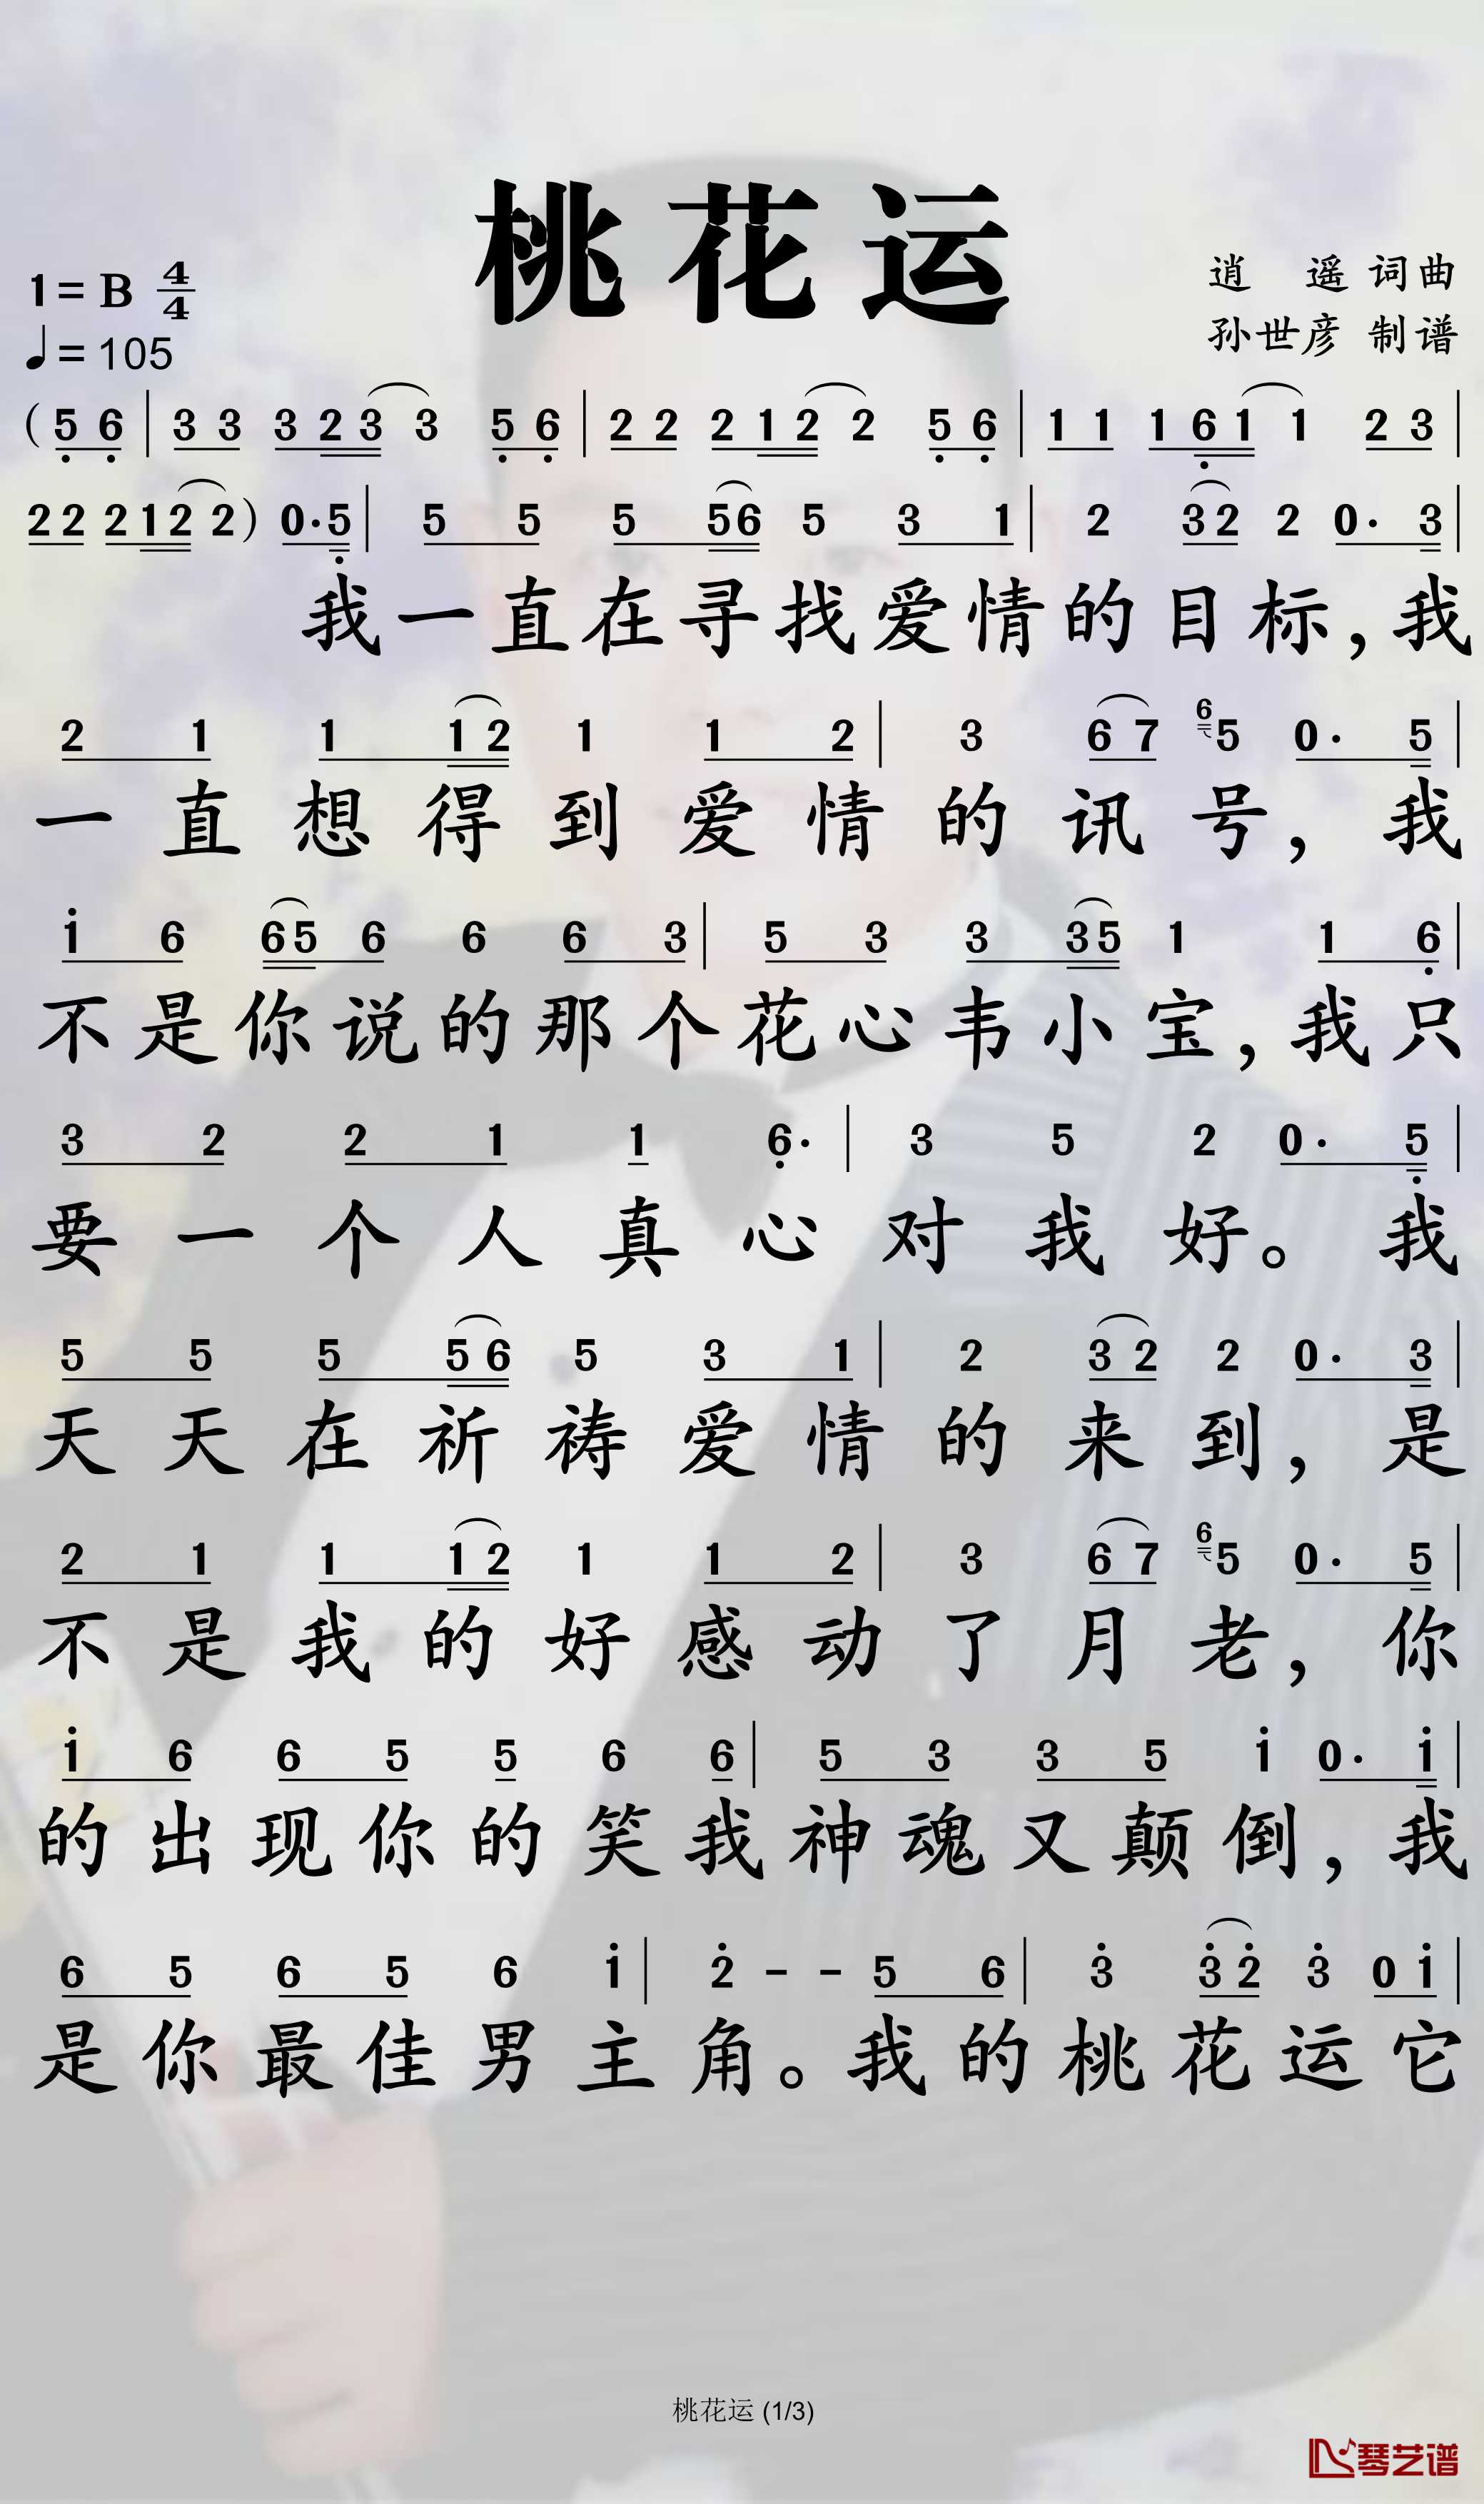 桃花运
1=B 4/4
逍 遥 词曲
♩=105
孙世彦 制谱
(5̣ 6̣ | 3 3 3 2 3 3 5̣ 6̣ | 2 2 2 1 2 2 5̣ 6̣ | 1 1 1 6̣ 1 1 2 3 |
2 2 2 1 2 2) 0·5̣ | 5 5 5 5 6 5 3 1 | 2 3 2 2 0· 3 |
我一直在寻找爱情的目标,我
2 1 1 1 2 1 1 2 | 3 6 7 6 5 0· 5 |
一直想得到爱情的讯号,我
i 6 6 5 6 6 6 3 | 5 3 3 3 5 1 1 6̣ |
不是你说的那个花心韦小宝,我只
3 2 2 1 1 6̣· | 3 5 2 0· 5̣ |
要一个人真心对我好。我
5 5 5 5 6 5 3 1 | 2 3 2 2 0· 3 |
天天在祈祷爱情的来到,是
2 1 1 1 2 1 1 2 | 3 6 7 6 5 0· 5 |
不是我的好感动了月老,你
i 6 6 5 5 6 6 | 5 3 3 5 i 0· i |
的出现你的笑我神魂又颠倒,我
6 5 6 5 6 i | 2̇ - - 5 6 | 3̇ 3̇ 2̇ 3̇ 0 i |
是你最佳男主角。我的桃花运它
桃花运 (1/3)
琴艺谱